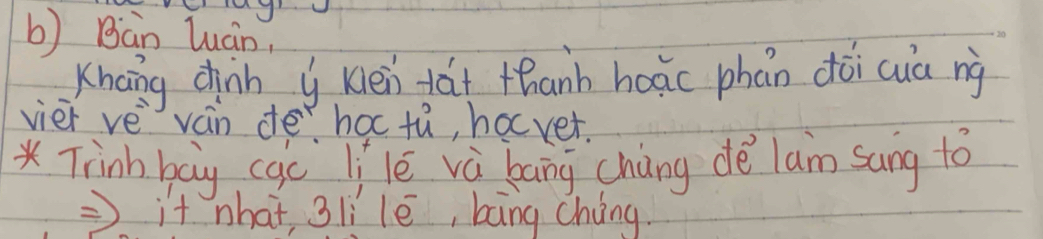 b) Bàn luận,
Khẳng định ý kiến tát thành hoặc phản đối của ng
viết về vấn đề học tủ, học vẹt.
* Trình bày các lí lẽ và bằng chứng để làm sáng tỏ
=> ít nhất, 3 lí lẽ, bằng chứng.